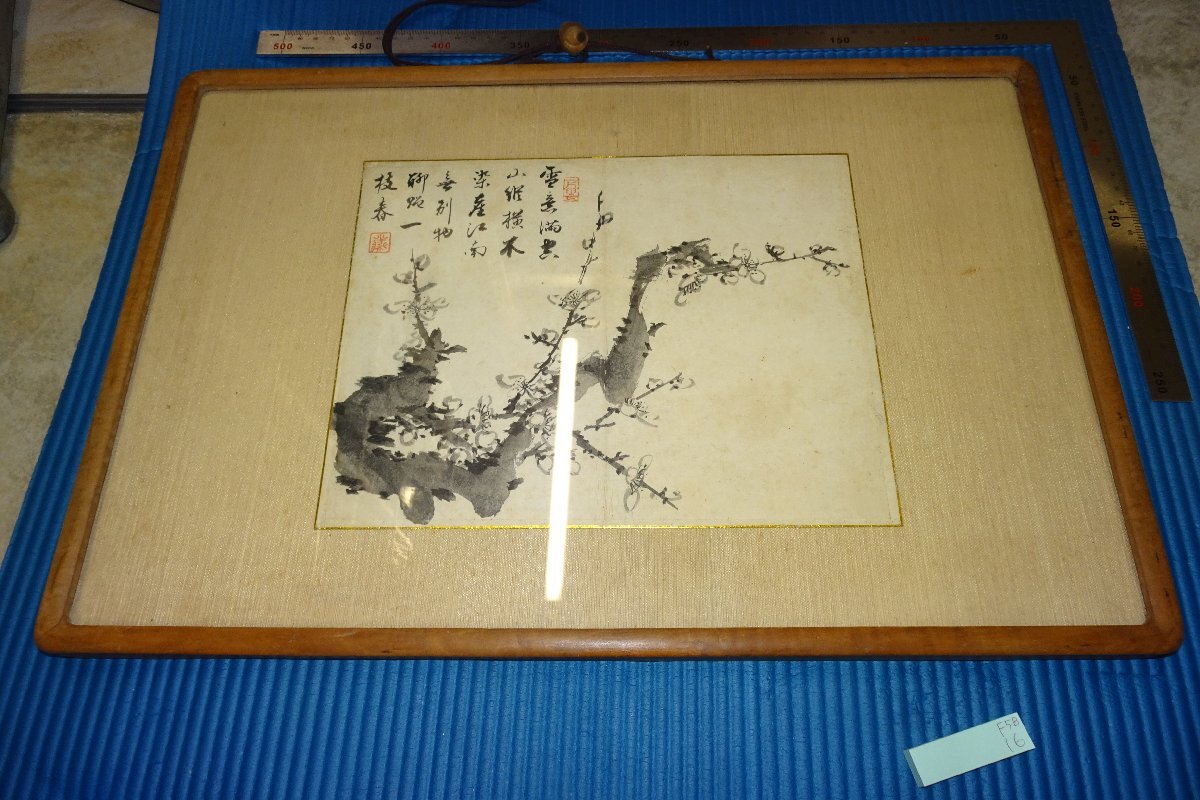 500 450 400 350 250 150 50
50
150
200
250
雪意满空
山縱横不
染塵江南
無別物
聊贈一
枝春
F58
16